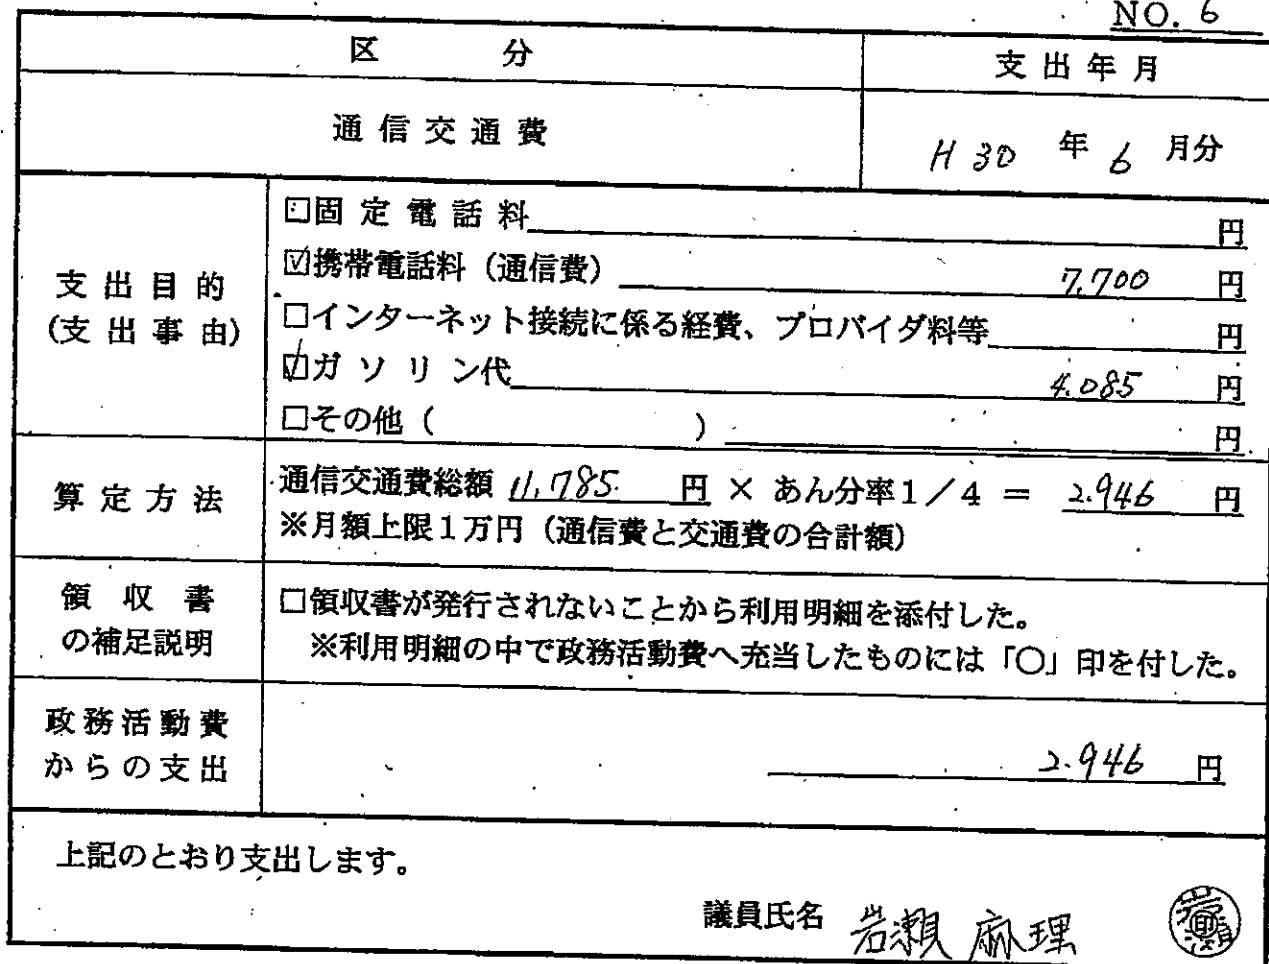 NO. 6
区 分
支出年月
通信交通費
H30 年 6 月分
支出目的
(支出事由)
□固定電話料 円
☑携帯電話料（通信費） 7,700 円
□インターネット接続に係る経費、プロバイダ料等 円
☑ガソリン代 4.085 円
□その他（ ） 円
算定方法
通信交通費総額 11,785 円 × あん分率1／4 ＝ 2.946 円
※月額上限1万円（通信費と交通費の合計額）
領収書
の補足説明
□領収書が発行されないことから利用明細を添付した。
※利用明細の中で政務活動費へ充当したものには「○」印を付した。
政務活動費
からの支出
2.946 円
上記のとおり支出します。
議員氏名 岩瀬 麻理